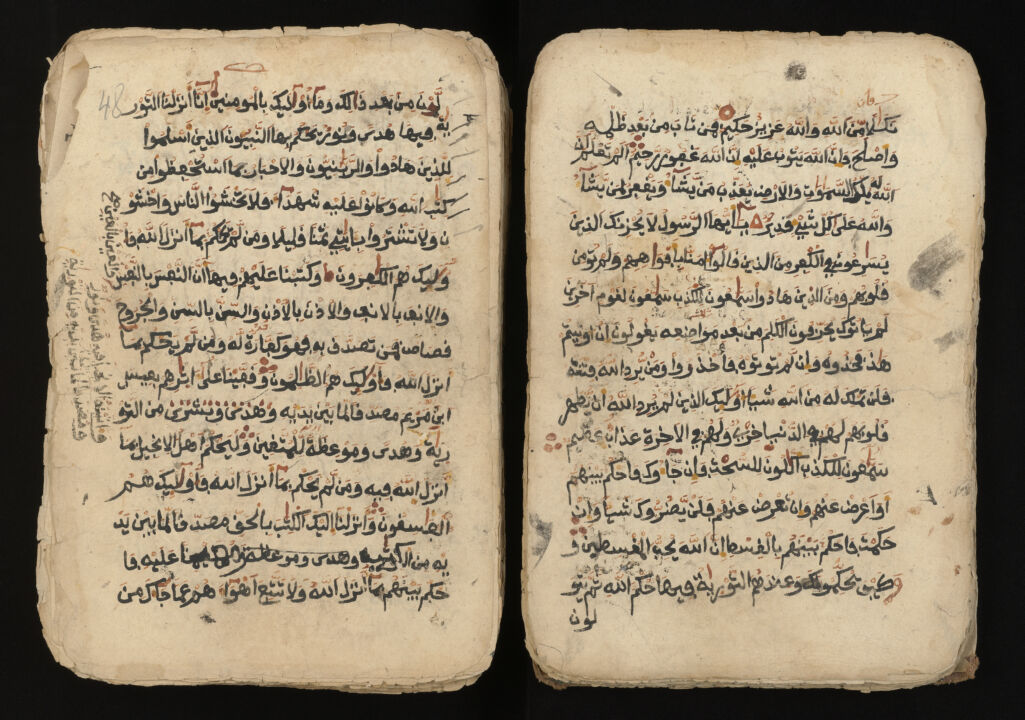 نكلا من الله والله عزيز حكيم فمن تاب من بعد ظلمه
واصلح فان الله يتوب عليه ان الله غفور رحيم الم تعلم ان
الله له ملك السموات والارض يعذب من يشآ ويغفر لمن يشآ
والله على كل شيء قدير يآيها الرسول لا يحزنك الذين
يسرعون في الكفر من الذين قالوا امنا بافواههم ولم تومن
قلوبهم ومن الذين هادوا سمعون للكذب سمعون لقوم اخرين
لم ياتوك يحرفون الكلم من بعد مواضعه يقولون ان اوتيتم
هذا فخذوه وان لم توتوه فاحذروا ومن يرد الله فتنته
فلن تملك له من الله شيا اوليك الذين لم يرد الله ان يطهر
قلوبهم لهم في الدنيا خزي ولهم في الاخرة عذاب عظيم
سمعون للكذب اكلون للسحت فان جآوك فاحكم بينهم
او اعرض عنهم وان تعرض عنهم فلن يضروك شيا وان
حكمت فاحكم بينهم بالقسط ان الله يحب المقسطين و
كيف يحكمونك وعندهم التورية فيها حكم الله ثم يتو
لون
48
لون من بعد ذالك ومآ اوليك بالمومنين انآ انزلنا التور
ية فيها هدى ونور يحكم بها النبيون الذين اسلموا
للذين هادوا والربنيون والاحبار بما استحفظوا من
كتب الله وكانوا عليه شهدآ فلا تخشوا الناس واخشو
ن ولا تشتروا بايتي ثمنا قليلا ومن لم يحكم بمآ انزل الله فا
وليك هم الكفرون وكتبنا عليهم فيهآ ان النفس بالنفس
والانف بالانف والاذن بالاذن والسن بالسن والجروح
قصاص فمن تصدق به فهو كفارة له ومن لم يحكم بمآ
انزل الله فاوليك هم الظلمون وقفينا على اثرهم بعيسى
ابن مريم مصدقا لما بين يديه وهدى من التو
رية وهدى وموعظة للمتقين وليحكم اهل الانجيل بمآ
انزل الله فيه ومن لم يحكم بمآ انزل الله فاوليك هم
الفسقون وانزلنا اليك الكتب بالحق مصدقا لما بين يد
يه من الكتب ومهيمنا عليه فا
حكم بينهم بمآ انزل الله ولا تتبع اهوآهم عما جآك من